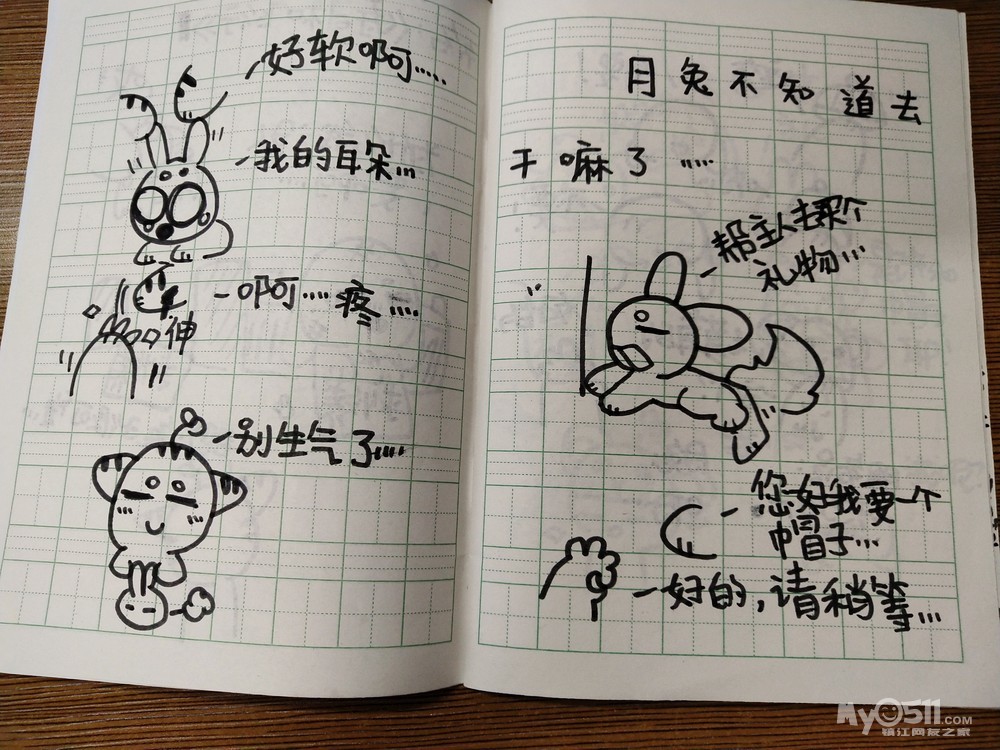 好软啊.....
我的耳朵...
啊.....疼.....
神
别生气了.....
月兔不知道去
干嘛了.....
帮主人去买个
礼物...
您好我要一个
帽子...
好的,请稍等...
My0511.COM
镇江网友之家